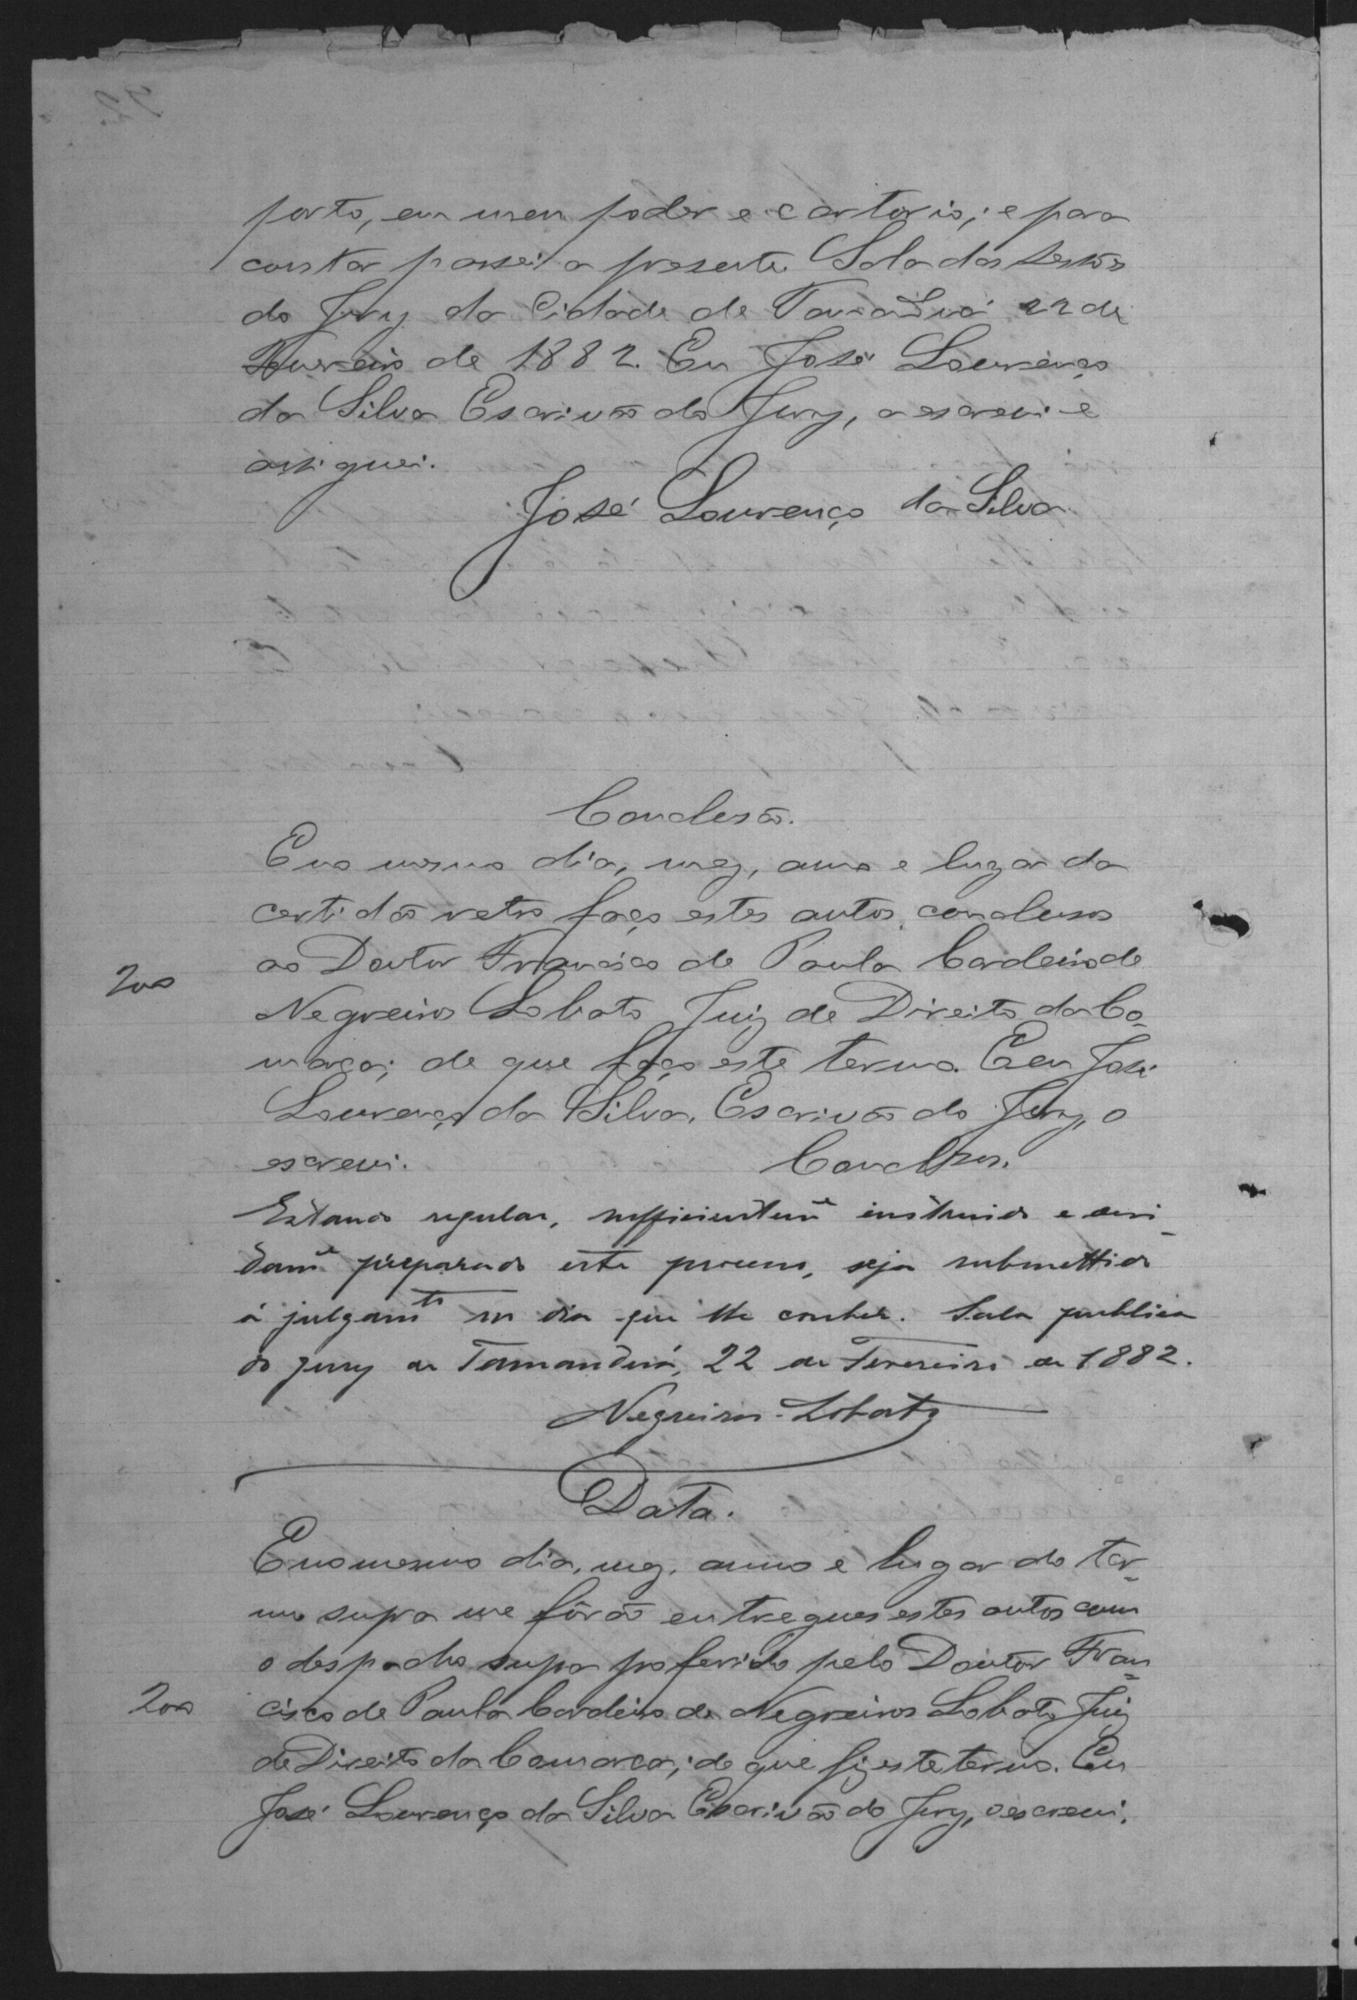 porto, em meu poder e cartorio; e para
constar passei a presente. Sala das sessões
do Jury da Cidade de Tamanduá 22 de
Fevereiro de 1882. Eu José Lourenço
da Silva Escrivão do Jury, a escrevi e
assignei.
José Lourenço da Silva.
Conclusão.
E no mesmo dia, mez, anno e lugar da
certidão retro faço estes autos conclusos
ao Doutor Francisco de Paula Cordeiro de
200
Negreiros Lobato Juiz de Direito da Co-
marca; de que faço este termo. Eeu José
Lourenço da Silva, Escrivão do Jury, o
escrevi. Conclusos.
Estando regular, sufficientemᵉ instruido e devi-
damᵉ preparado este processo, seja submettido
á julgamᵗᵒ no dia que lhe couber. Sala publica
do jury de Tamanduá, 22 de Fevereiro de 1882.
Negreiros Lobato
Data.
E no mesmo dia, mez, anno e lugar do ter-
mo supra me fôrão entregues estes autos com
o despacho supra proferido pelo Doutor Fran-
200
cisco de Paula Cordeiro de Negreiros Lobato Juiz
de Direito da Comarca; de que fiz este termo. Eu
José Lourenço da Silva Escrivão do Jury, o escrevi.